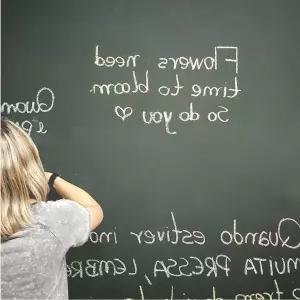 Flowers need
time to bloom
so do you ♡
Quando estiver
MUITA PRESSA, LEMBRE